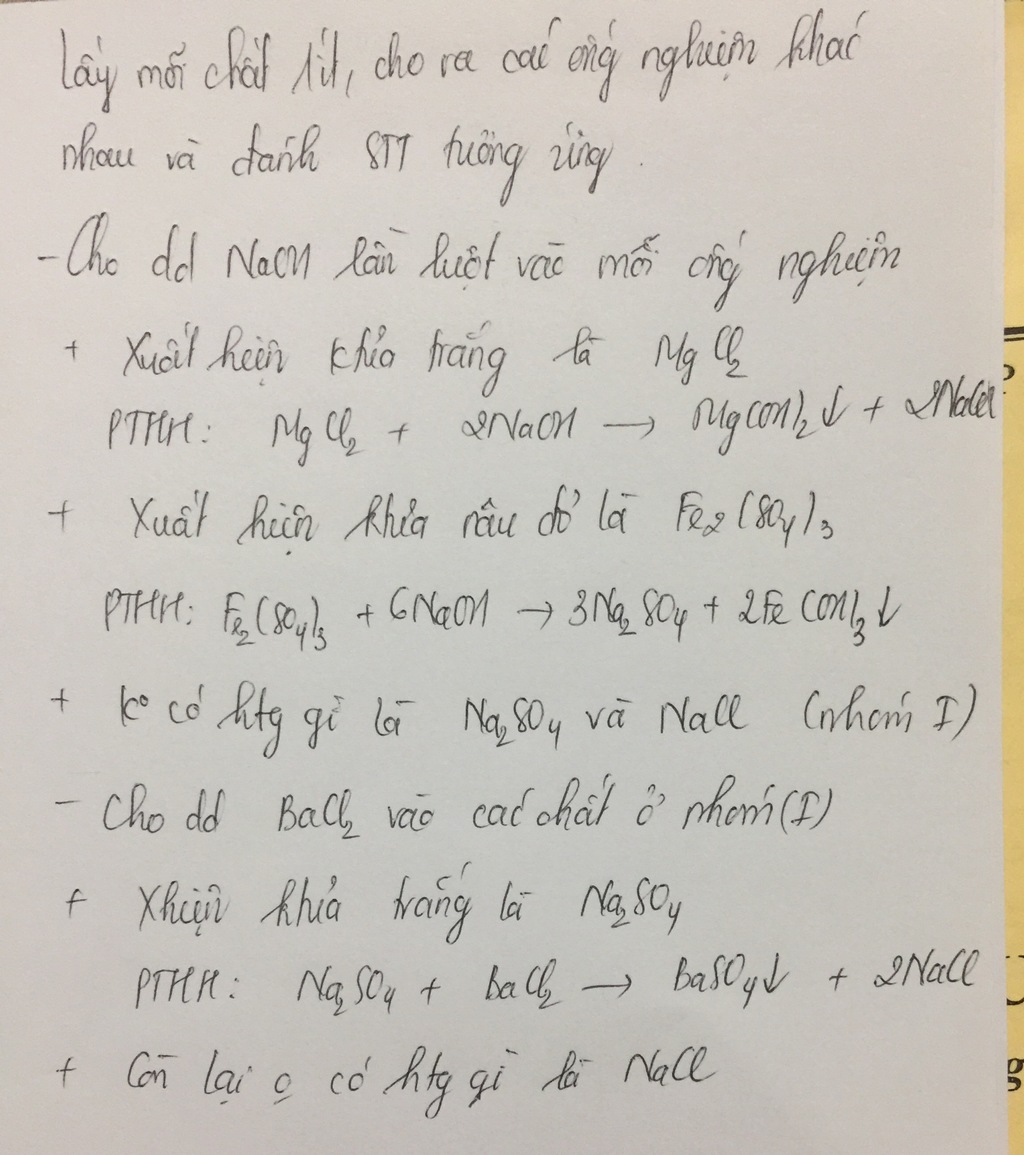 Lấy mỗi chất 1 ít, cho ra các ống nghiệm khác
nhau và đánh STT tương ứng.
- Cho dd NaOH lần lượt vào mỗi ống nghiệm
+ Xuất hiện khủa trắng là MgCl₂
PTHH: MgCl₂ + 2NaOH → Mg(OH)₂↓ + 2NaCl
+ Xuất hiện khủa nâu đỏ là Fe₂(SO₄)₃
PTHH: Fe₂(SO₄)₃ + 6NaOH → 3Na₂SO₄ + 2Fe(OH)₃↓
+ K° có htg gì là Na₂SO₄ và NaCl (nhóm I)
- Cho dd BaCl₂ vào các chất ở nhóm (I)
+ Xhiện khủa trắng là Na₂SO₄
PTHH: Na₂SO₄ + BaCl₂ → BaSO₄↓ + 2NaCl
+ Còn lại có htg gì là NaCl